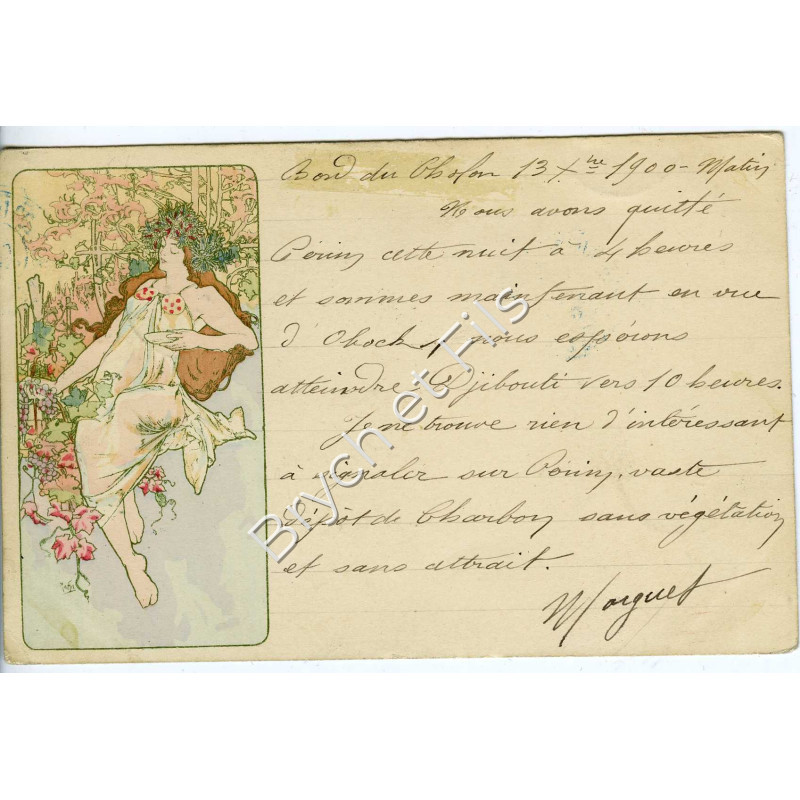 Bord du Cholon 13 Xbre 1900 - Matin
Nous avons quitté
Périm cette nuit à 4 heures
et sommes maintenant en vue
d'Obock, nous espérons
atteindre Djibouti vers 10 heures.
Je ne trouve rien d'intéressant
à signaler sur Périm, vaste
dépôt de Charbon sans végétation
et sans attrait.
Brych et Fils